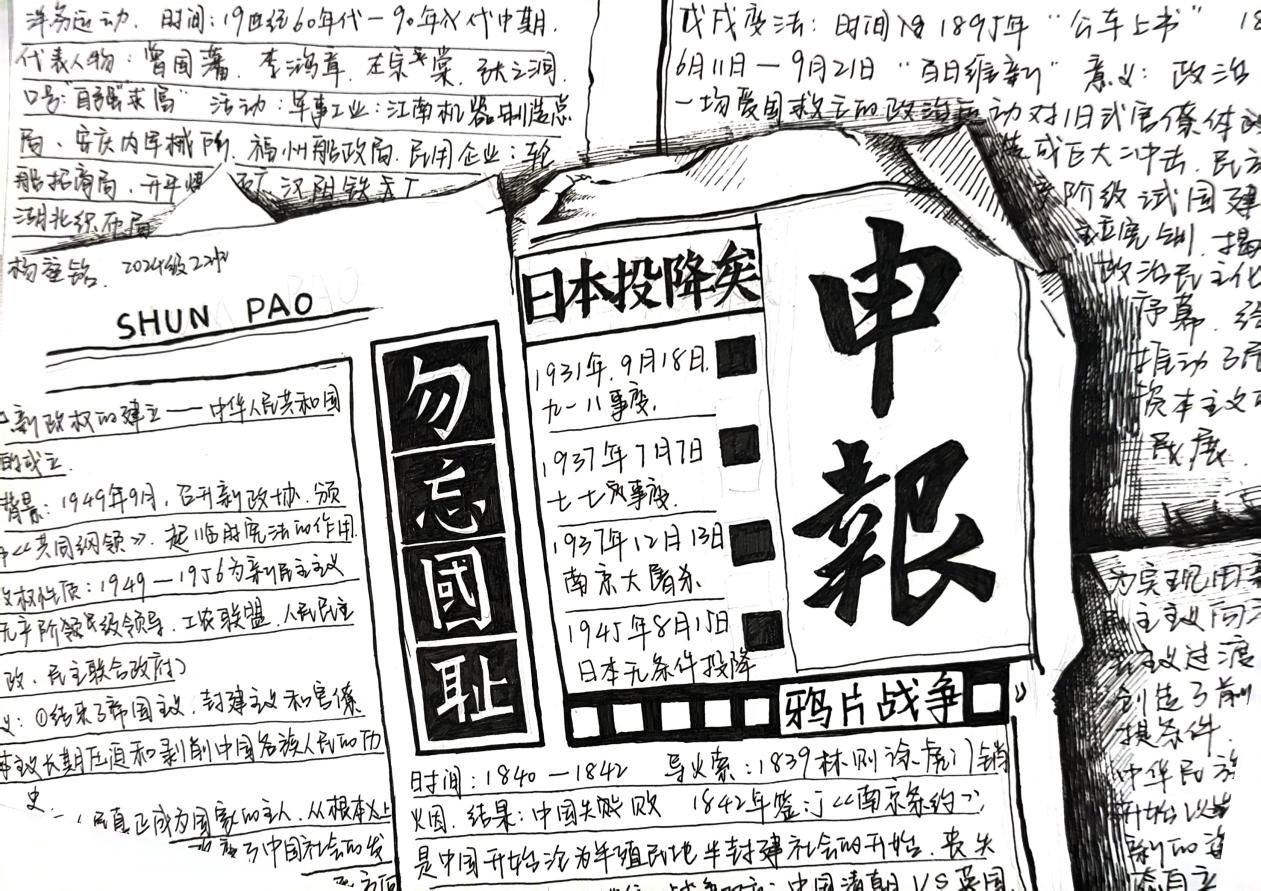 洋务运动. 时间:19世纪60年代—90年代中期.
代表人物:曾国藩. 李鸿章. 左宗棠. 张之洞.
口号:"自强""求富" 活动:军事工业:江南机器制造总
局、安庆内军械所. 福州船政局. 民用企业:轮
船招商局. 开平 汉阳铁
湖北织布局
2024级22班
SHUN PAO
新政权的建立——中华人民共和国
的成立.
背景:1949年9月,召开新政协.颁
《共同纲领》.起临时宪法的作用.
政权性质:1949—1956为新民主主义
无产阶级领导.工农联盟.人民民主
政、民主联合政府)
义:①结束了帝国主义.封建主义和官僚
本主义长期压迫和剥削中国各族人民的历
史.
人民真正成为国家的主人.从根本上
变了中国社会的发
勿忘國耻
日本投降矣
1931年.9月18日.
九一八事变.
1937年7月7日
七七事变.
1937年12月13日
南京大屠杀
1945年8月15日
日本无条件投降
申報
鸦片战争
时间:1840—1842 导火索:1839林则徐虎门销
烟. 结果:中国失败 1842年签订《南京条约》
是中国开始沦为半殖民地半封建社会的开始.丧失
中国清朝VS英国
戊戌变法:时间 1895年"公车上书" 18
6月11日—9月21日"百日维新" 意义:政治
一场爱国救亡的政治运动对旧式官僚体
造成巨大冲击. 民
产阶级试图建
宪制.揭
政治民主化
序幕.给
推动了民
资本主义
展.
为实现由
民主主义向
主义过渡
创造了前
提条件.
中华民族
开始以
新的姿